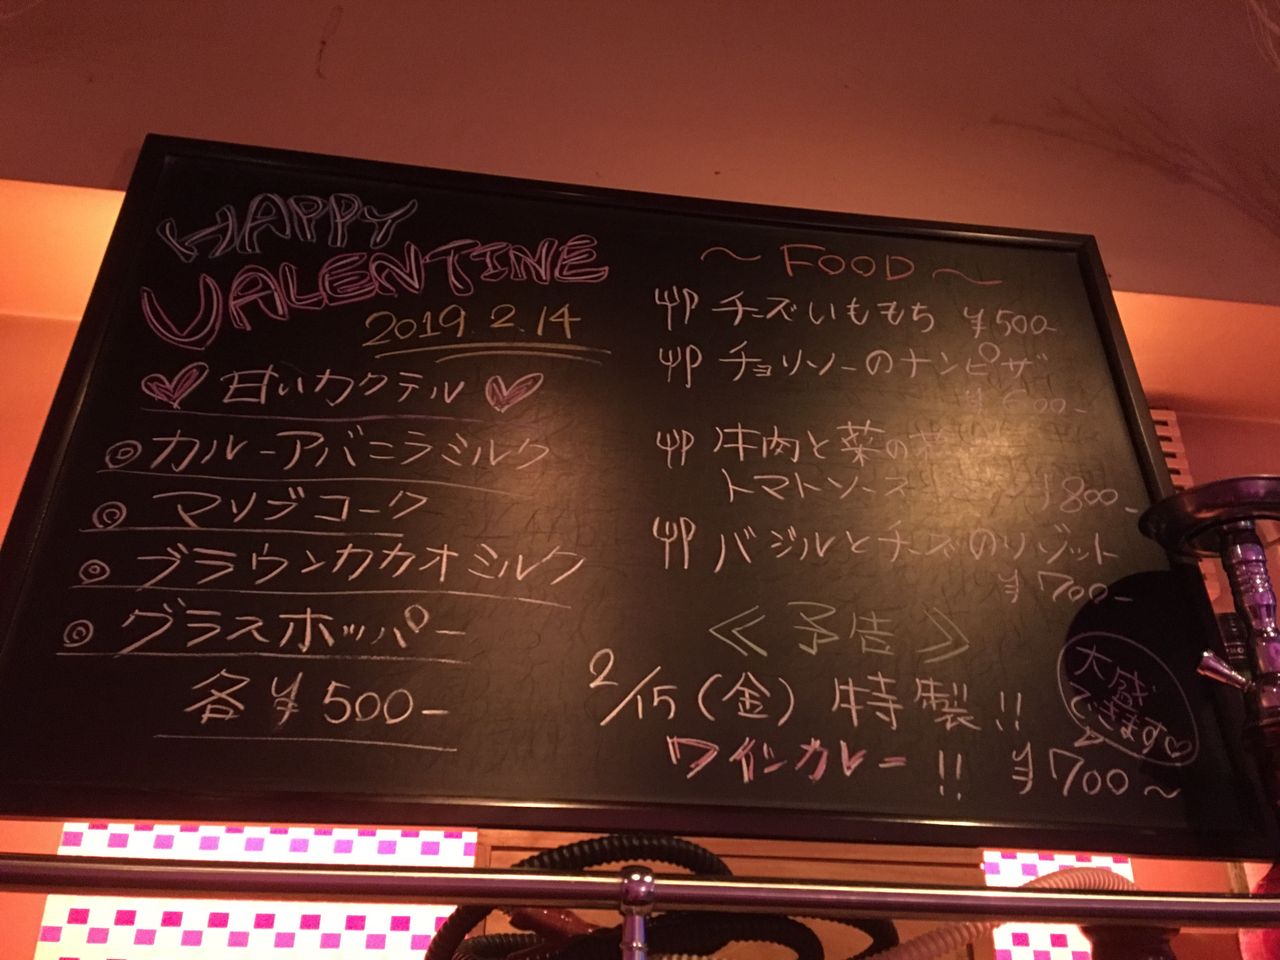 HAPPY
VALENTINE
2019.2.14
甘いカクテル
カルーアバニラミルク
マリブコーク
ブラウンカカオミルク
グラスホッパー
各¥500-
〜FOOD〜
チーズいももち ¥500-
チョリソーのナンピザ
¥600-
牛肉と菜の花
トマトソース ¥800-
バジルとチーズのリゾット
¥700-
≪予告≫
2/15(金)特製!!
ワインカレー!! ¥700〜
大盛
できます♡